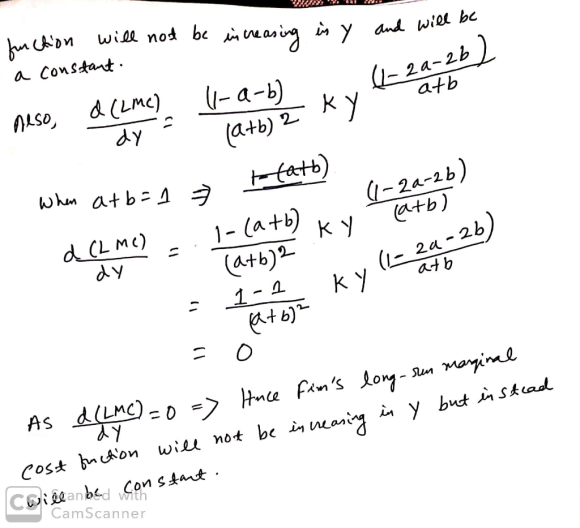 function will not be increasing in y and will be
a constant.
Also, d(LMC)/dy = (1-a-b)/(a+b)2 k y (1-2a-2b)/a+b
When a+b=1 ⇒ 1-(a+b)
d(LMC)/dy = 1-(a+b)/(a+b)2 k y (1-2a-2b)/(a+b)
= 1-1/(a+b)2 k y (1-2a-2b)/a+b
= 0
As d(LMC)/dy = 0 => Hence firm's long-run marginal
cost function will not be increasing in y but instead
will be constant.
CS Scanned with
CamScanner